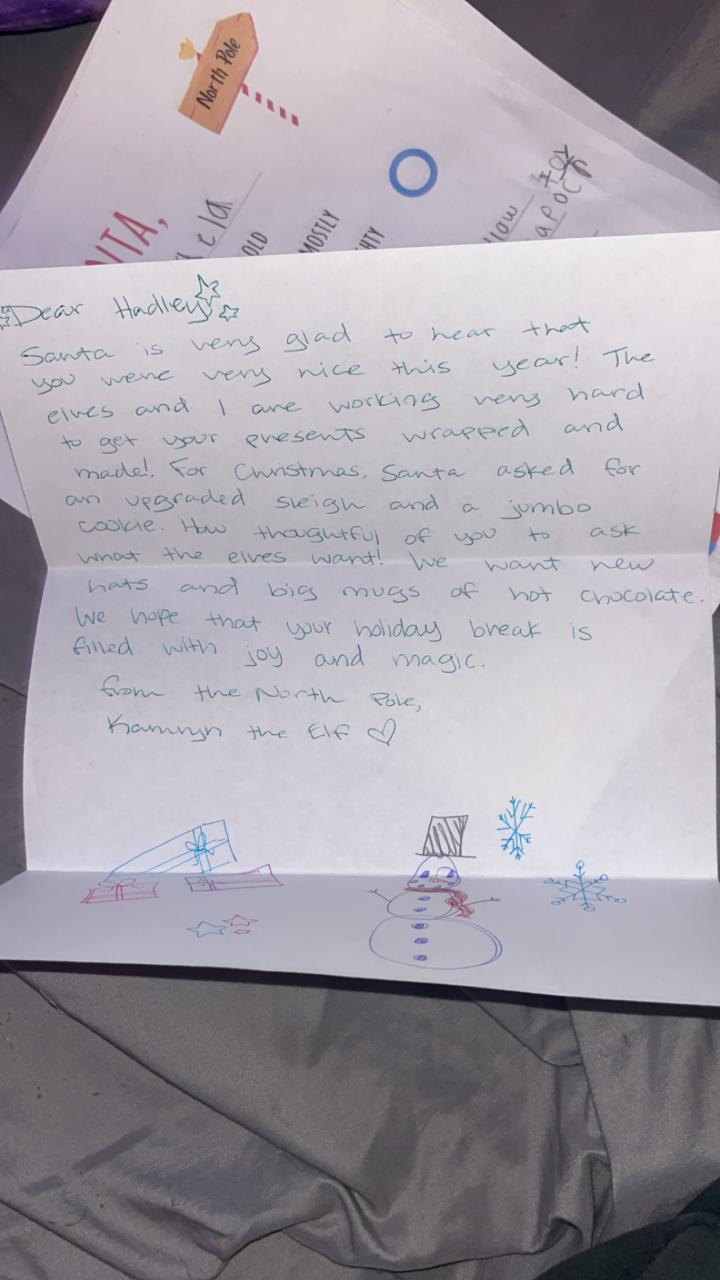 North Pole
ela
OLD
MOSTLY
HTY
Dear Hadley
Santa is very glad to hear that
you were very nice this year! The
elves and I are working very hard
to get your presents wrapped and
made! For Christmas, Santa asked for
an upgraded sleigh and a jumbo
cookie. How thoughtful of you to ask
what the elves want! We want new
hats and big mugs of hot chocolate.
We hope that your holiday break is
filled with joy and magic.
from the North Pole,
Kamryn the Elf